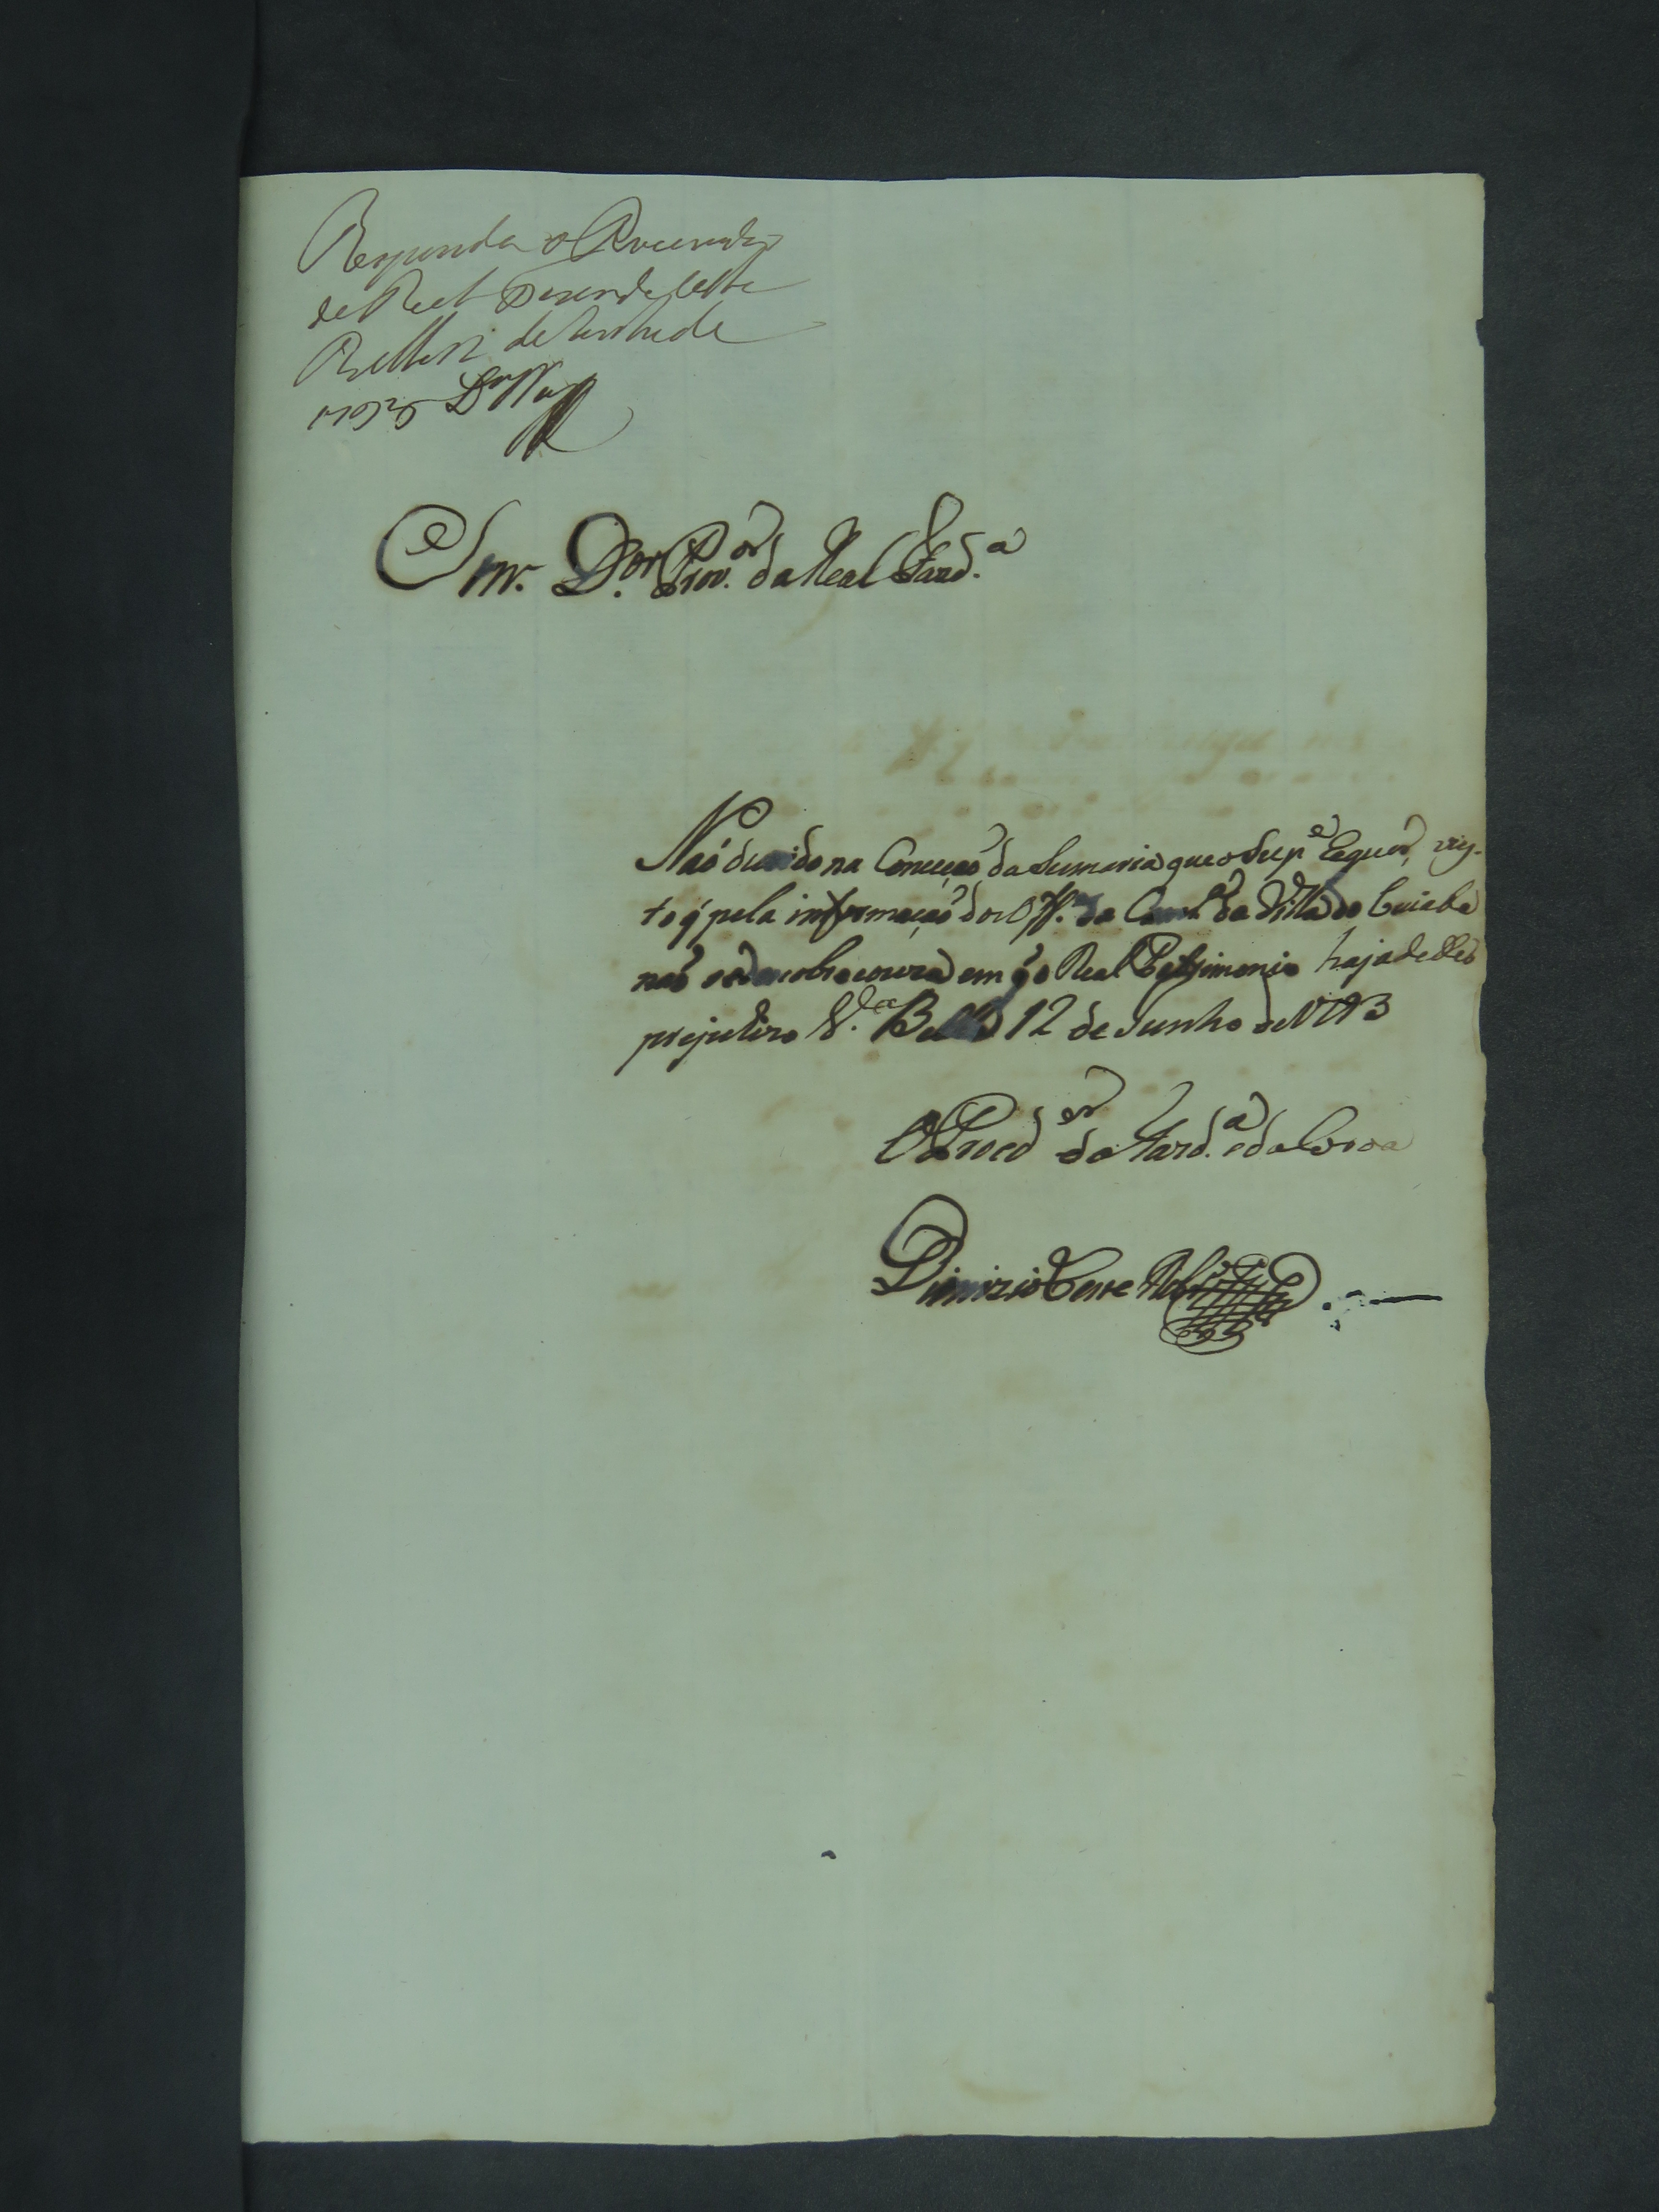 Responda o Procurador
da Real Fazenda
de Junho de
1793
Snr. D.or Prov.or da Real Fazd.a
Naõ duvido na Conceçaõ da Sumaria que o Sup.e Requer, vis-
to q̃ pela informaçaõ dos Off.es da Cam.ra da Villa do Cuiaba
naõ se descobre couza em q̃ o Real Patrimonio haja de ter
prejuizo V.a Bella 12 de Junho de 1793
O Procd.or da Fazd.a e da Coroa
Dionizio